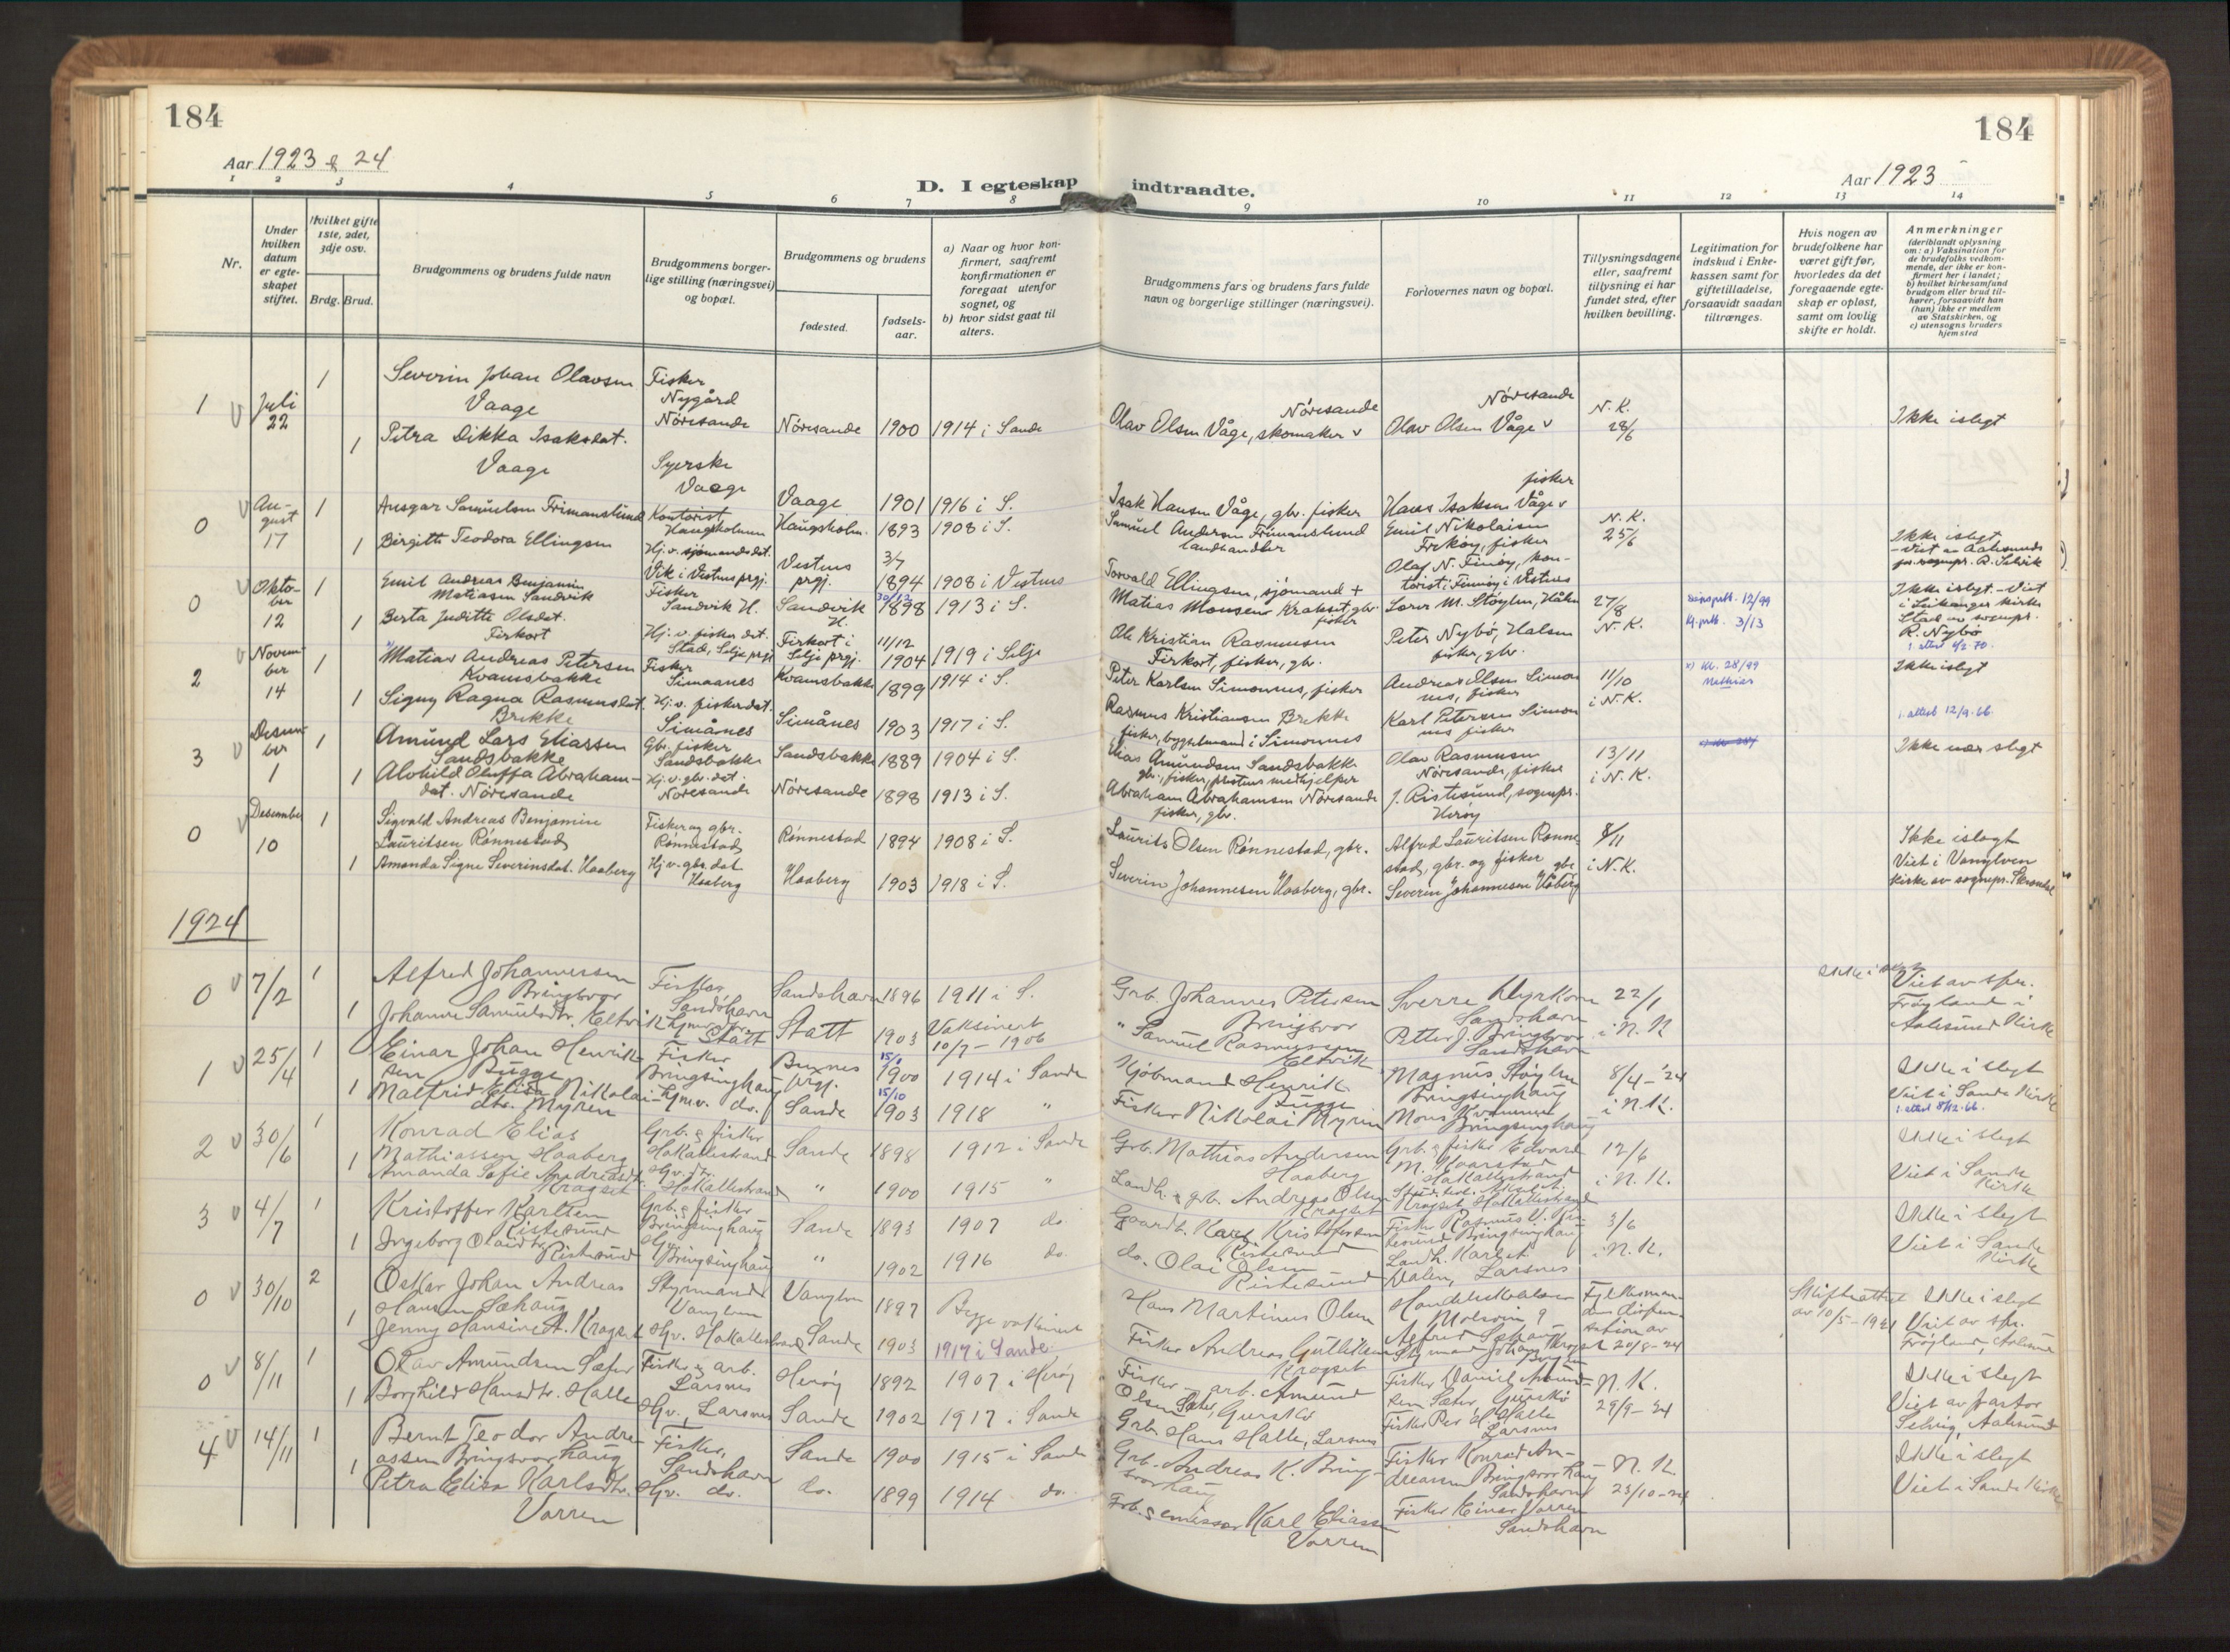 184
184
Aar 1923 & 24
D. I egteskap indtraadte.
Aar 1923
1 2 3 4 5 6 7 8 9 10 11 12 13 14
Nr.
Under hvilken datum er egteskapet stiftet.
Hvilket gifte 1ste, 2det, 3dje osv.
Brdg. Brud.
Brudgommens og brudens fulde navn
Brudgommens borgerlige stilling (næringsvei) og bopæl.
Brudgommens og brudens
fødested.
fødselsaar.
a) Naar og hvor konfirmert, saafremt konfirmationen er foregaat utenfor sognet, og
b) hvor sidst gaat til alters.
Brudgommens fars og brudens fars fulde navn og borgerlige stillinger (næringsvei).
Forlovernes navn og bopæl.
Tillysningsdagene eller, saafremt tillysning ei har fundet sted, efter hvilken bevilling.
Legitimation for indskud i Enkekassen samt for giftetilladelse, forsaavidt saadan tiltrænges.
Hvis nogen av brudefolkene har været gift før, hvorledes da det foregaaende egteskap er opløst, samt om lovlig skifte er holdt.
Anmerkninger
(deriblandt oplysning om: a) Vaksination for de brudefolks vedkommende, der ikke er konfirmert her i landet;
b) hvilket kirkesamfund brudgom eller brud tilhører, forsaavidt han (hun) ikke er medlem av Statskirken, og
c) utensogns bruders hjemsted
1 Juli 22 1 Severin Johan Olavsen Vaage Fisker Nygård Nöresande Nöresande 1900 1914 i Sande Olav Olsen Våge, skomaker Nöresande Olav Olsen Våge Nöresande N. K. 28/6 Ikke i slegt
1 Petra Dikka Isaksdat. Vaage Syerske Vaage Vaage 1901 1916 i S. Isak Hansen Våge, gbr. fisker Hans Isaksen Våge fisker
0 August 17 1 Ansgar Samuelsen Frimanslund Kontorist Haugsholmen Haugsholm. 1893 1908 i S. Samuel Andersen Frimanslund landhandler Emil Nikolaisen Frekøy, fisker N. K. 25/6 Ikke i slegt - Viet av Aalesunds
1 Birgitte Teodora Ellingsen Hj. v. sjömandsdat. Vik i Vestnes prgj. Vestnes prgj. 3/7 1894 1908 i Vestnes Torvald Ellingsen, sjömand + Olaf N. Finöy, kontorist, Finnöy i Vestnes
0 Oktober 12 1 Emil Andreas Benjamin Matiasen Sandvik Fisker Sandvik H. Sandvik H. 30/12 1898 1913 i S. Matias Monsen Krakset, gbr. fisker M. Støylen, Håkn 27/8 N. K. 12/99 Ikke i slegt. - Viet i Leikanger kirke Stad av sognepr. R. Nybö
1 Berta Juditte Olsdat. Firkort Hj. v. fisker dat. Stad, Selje prgj Firkort i Selje prgj. 11/12 1904 1919 i Selje Ole Kristian Rasmussen Firkort, fisker, gbr. Peter Nybö, Halsen fisker, gbr. 3/13
2 November 14 1 Matias Andreas Petersen Kvamsbakke Fisker Simaanes Kvamsbakke 1899 1914 i S. Peter Karlsen Simonnes, fisker Andreas Olsen Simonnes, fisker 11/10 i N. K. 28/99 Mathias Ikke i slegt
1 Signy Ragna Rasmusdat. Brekke Hj. v. fiskerdat. Simånes Simånes 1903 1917 i S. Rasmus Kristiansen Brekke fisker, bygselmand i Simonnes Karl Petersen Simonnes fisker 1. attest 12/9-66.
3 Desember 1 1 Amund Lars Eliassen Sandsbakke Gbr. fisker Sandsbakke Sandsbakke 1889 1904 i S. Elias Amundsen Sandsbakke gbr., fisker, prestens medhjelper Olav Rasmussen Nöresande, fisker 13/11 i N. K. Ikke nær slegt
1 Alvhild Oluffa Abrahamdat. Nöresande Hj. v. gbr. dat. Nöresande Nöresande 1898 1913 i S. Abraham Abrahamsen Nöresande fisker, gbr. J. Ristesund, sognepr. Heröy
0 Desember 10 1 Sigvald Andreas Benjamin Lauritsen Rönnestad Fisker og gbr. Rönnestad Rönnestad 1894 1908 i S. Laurits Olsen Rönnestad, gbr. Alfred Lauritsen Rönnestad, gbr. og fisker 8/11 i N. K. Ikke i slegt Viet i Vanylven kirke av sognepr.
1 Amanda Signe Severinsdat. Haaberg Hj. v. gbr. dat Haaberg Haaberg 1903 1918 i S. Severin Johannesen Haaberg, gbr. Severin Johannesen Håberg gbr
1924
0 7/2 1 Alfred Johannessen Bringsvor Fisker Sandshavn Sandshavn 1896 1911 i S. Grb. Johannes Petersen Bringsvor Sverre Dyrkorn Sandshavn 22/1 i N. K Ikke i slegt Viet av spr. Frøyland i Aalesund Kirke
1 Johanne Samuelsdtr. Eltvik Hjmv. Statt Statt 1903 Vaksinert 10/7 - 1906 " Samuel Rasmussen Eltvik Petter J. Bringsvor Sandshavn
1 25/4 1 Einar Johan Henriksen Bugge Fisker Bringsinghaug Buxnes prgj. 15/1 1900 1914 i Sande Kjøbmand Henrik Bugge Magnus Støylen Bringsinghaug 8/4 - '24 i N. K. Ikke i slegt Viet i Sande Kirke 1. attest 5/12-66.
1 Malfrid Elida Nikolaidtr. Myren Hjmv. do. Sande 15/10 1903 1918 " Fisker Nikolai Myren Mons Kvammen Bringsinghaug
2 30/6 1 Konrad Elias Mathiassen Haaberg Grb. & fisker Hakallestrand Sande 1898 1912 i Sande Grb. Mathias Andersen Haaberg Grb. & fisker Edvard M. Kvarstad Hakallestrand 12/6 i N. K. Ikke i slegt Viet i Sande Kirke
1 Amanda Sofie Andreasdtr. Kragset Hakallestrand " 1900 1915 " Landh. & grb. Andreas Olsen Kragset Kragset, Hakallestrand
3 4/7 1 Kristoffer Karlsen Ristesund Grb. & fisker Bringsinghaug Sande 1893 1907 do. Gaardb. Karl Kristoffersen Ristesund Fisker Rasmus Bringsinghaug 3/6 i N. K. Ikke i slegt Viet i Sande Kirke
1 Ingeborg Olaidtr. Ristesund Hjv. Bringsinghaug " 1902 1916 do. do. Olai Olsen Ristesund Landh. Larsnes
0 30/10 2 Oskar Johan Andreas Hansen Sæhaug Styrmand Vanylven Vanylven 1897 Begge vaksinert Hans Martinus Olsen Fylkesmandens dispensation av 20/8-24 Skifteattest av 10/5-1921 Ikke i slegt Viet av spr. Frøyland, Aalesund
1 Jenny Hansine A. Kragset Hjv. Hakallestrand Sande 1903 1917 i Sande Fisker Andreas Gulliksen Kragset Alfred Sæhaug
0 8/11 1 Olav Amundsen Sæter Fisker & arb. Larsnes Herøy 1892 1907 i Herøy Fisker - arb. Amund Olsen Sæter, Gurskø Fisker Daniel Amundsen Sæter, Gurskø N. K. 29/9-24 Ikke i slegt Viet av pastor Selvig, Aalesund
1 Borghild Hansdtr. Halle Hjv., Larsnes Sande 1902 1917 i Sande Grb. Hans Halle, Larsnes Fisker Per H. Halle Larsnes
4 14/11 1 Bernt Teodor Andreassen Bringsvorhaug Fisker, Sandshavn Sande 1900 1915 i Sande Grb. Andreas K. Bringsvorhaug Fisker Konrad Andreassen Bringsvorhaug Sandshavn N. K. 23/10-24 Ikke i slegt Viet i Sande Kirke
1 Petra Elisa Karlsdtr. Vorren Hjv. do. do. 1899 1914 do. Grb. & emissær Karl Eliassen Vorren Fisker Einar Vorren Sandshavn